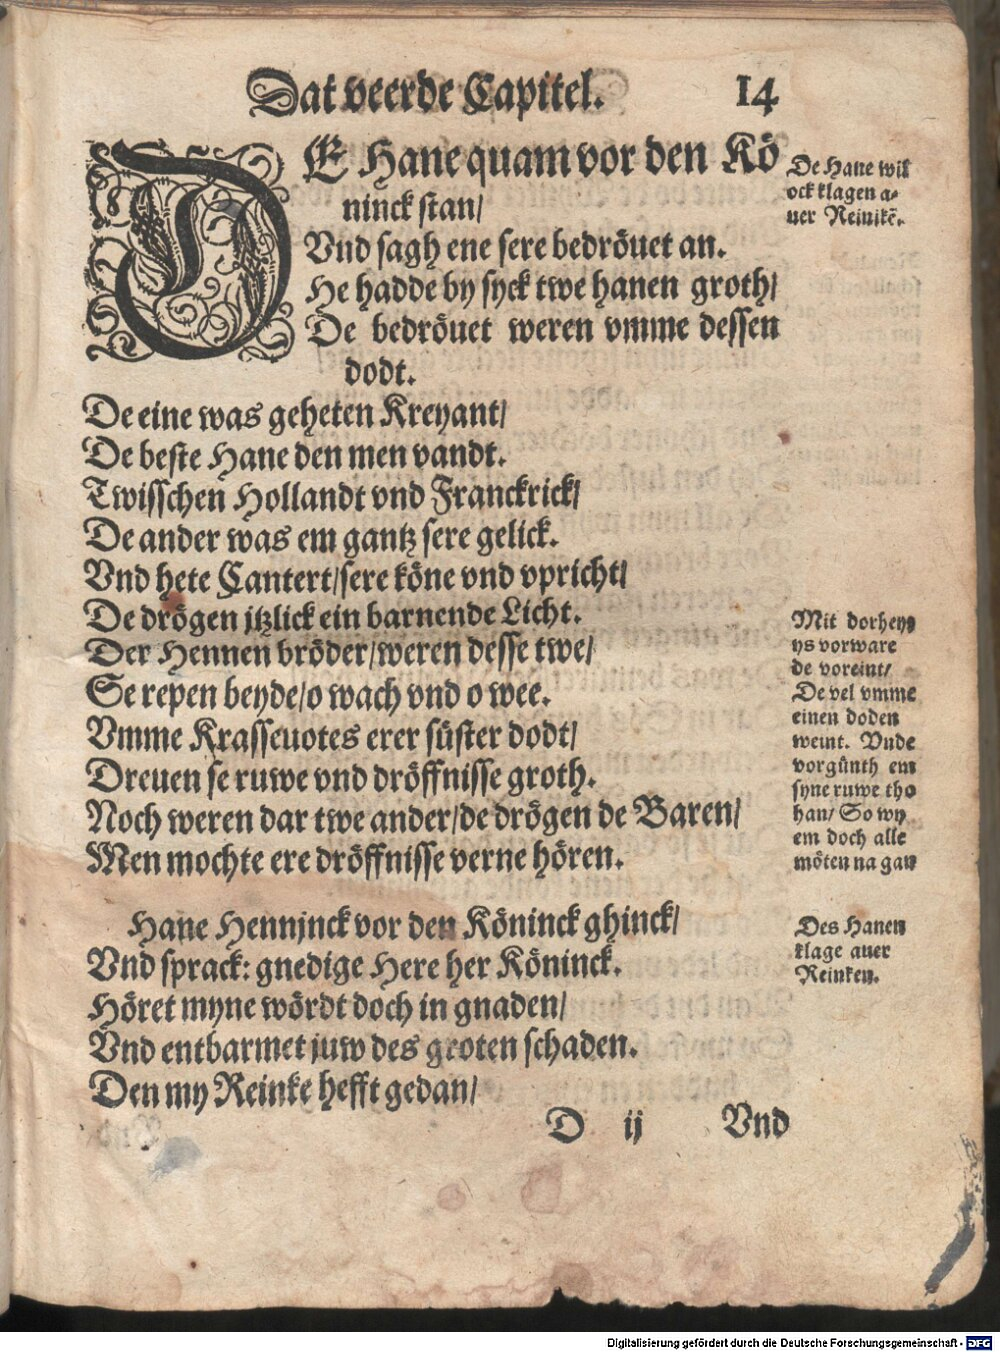 Dat veerde Capitel. 14
DE Hane quam vor den Kö
ninck stan/
Vnd sagh ene sere bedröuet an.
He hadde by syck twe hanen groth/
De bedröuet weren vmme dessen
dodt.
De eine was geheten Kreyant/
De beste Hane den men vandt.
Twisschen Hollandt vnd Franckrick/
De ander was em gantz sere gelick.
Vnd hete Cantert/sere köne vnd vpricht/
De drögen jtzlick ein barnende Licht.
Der Hennen bröder/weren desse twe/
Se repen beyde/o wach vnd o wee.
Vmme Krasseuotes erer süster dodt/
Dreuen se ruwe vnd dröffnisse groth.
Noch weren dar twe ander/de drögen de Baren/
Men mochte ere dröffnisse verne hören.
Hane Hennjnck vor den Köninck ghinck/
Vnd sprack: gnedige Here her Köninck.
Höret myne wördt doch in gnaden/
Vnd entbarmet juw des groten schaden.
Den my Reinke hefft gedan/
D ij Vnd
De Hane wil
ock klagen a-
uer Reinikē.
Mit dorheyt
ys vorware
de voreint/
De vel vmme
einen doden
weint. Vnde
vorgünth em
syne ruwe tho
han/ So wy
em doch alle
möten na gan
Des Hanen
klage auer
Reinken.
Digitalisierung gefördert durch die Deutsche Forschungsgemeinschaft - DFG